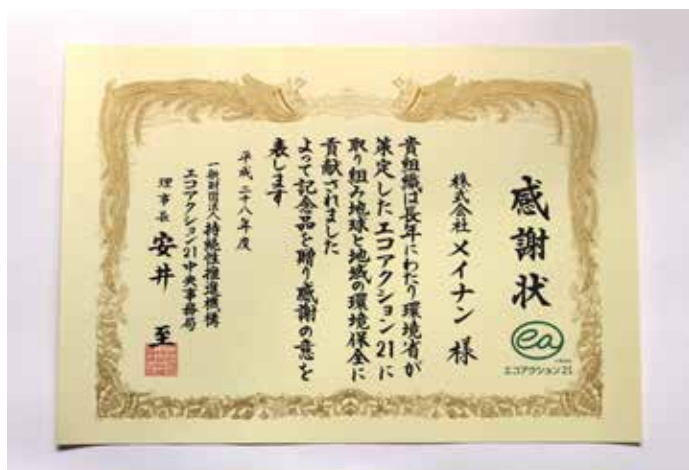 感謝状
ea
エコアクション21
株式会社 メイナン 様
貴組織は長年にわたり環境省が
策定したエコアクション21に
取り組み地球と地域の環境保全に
貢献されました
よって記念品を贈り感謝の意を
表します
平成二十八年度
一般財団法人 持続性推進機構
エコアクション21中央事務局
理事長 安井 至